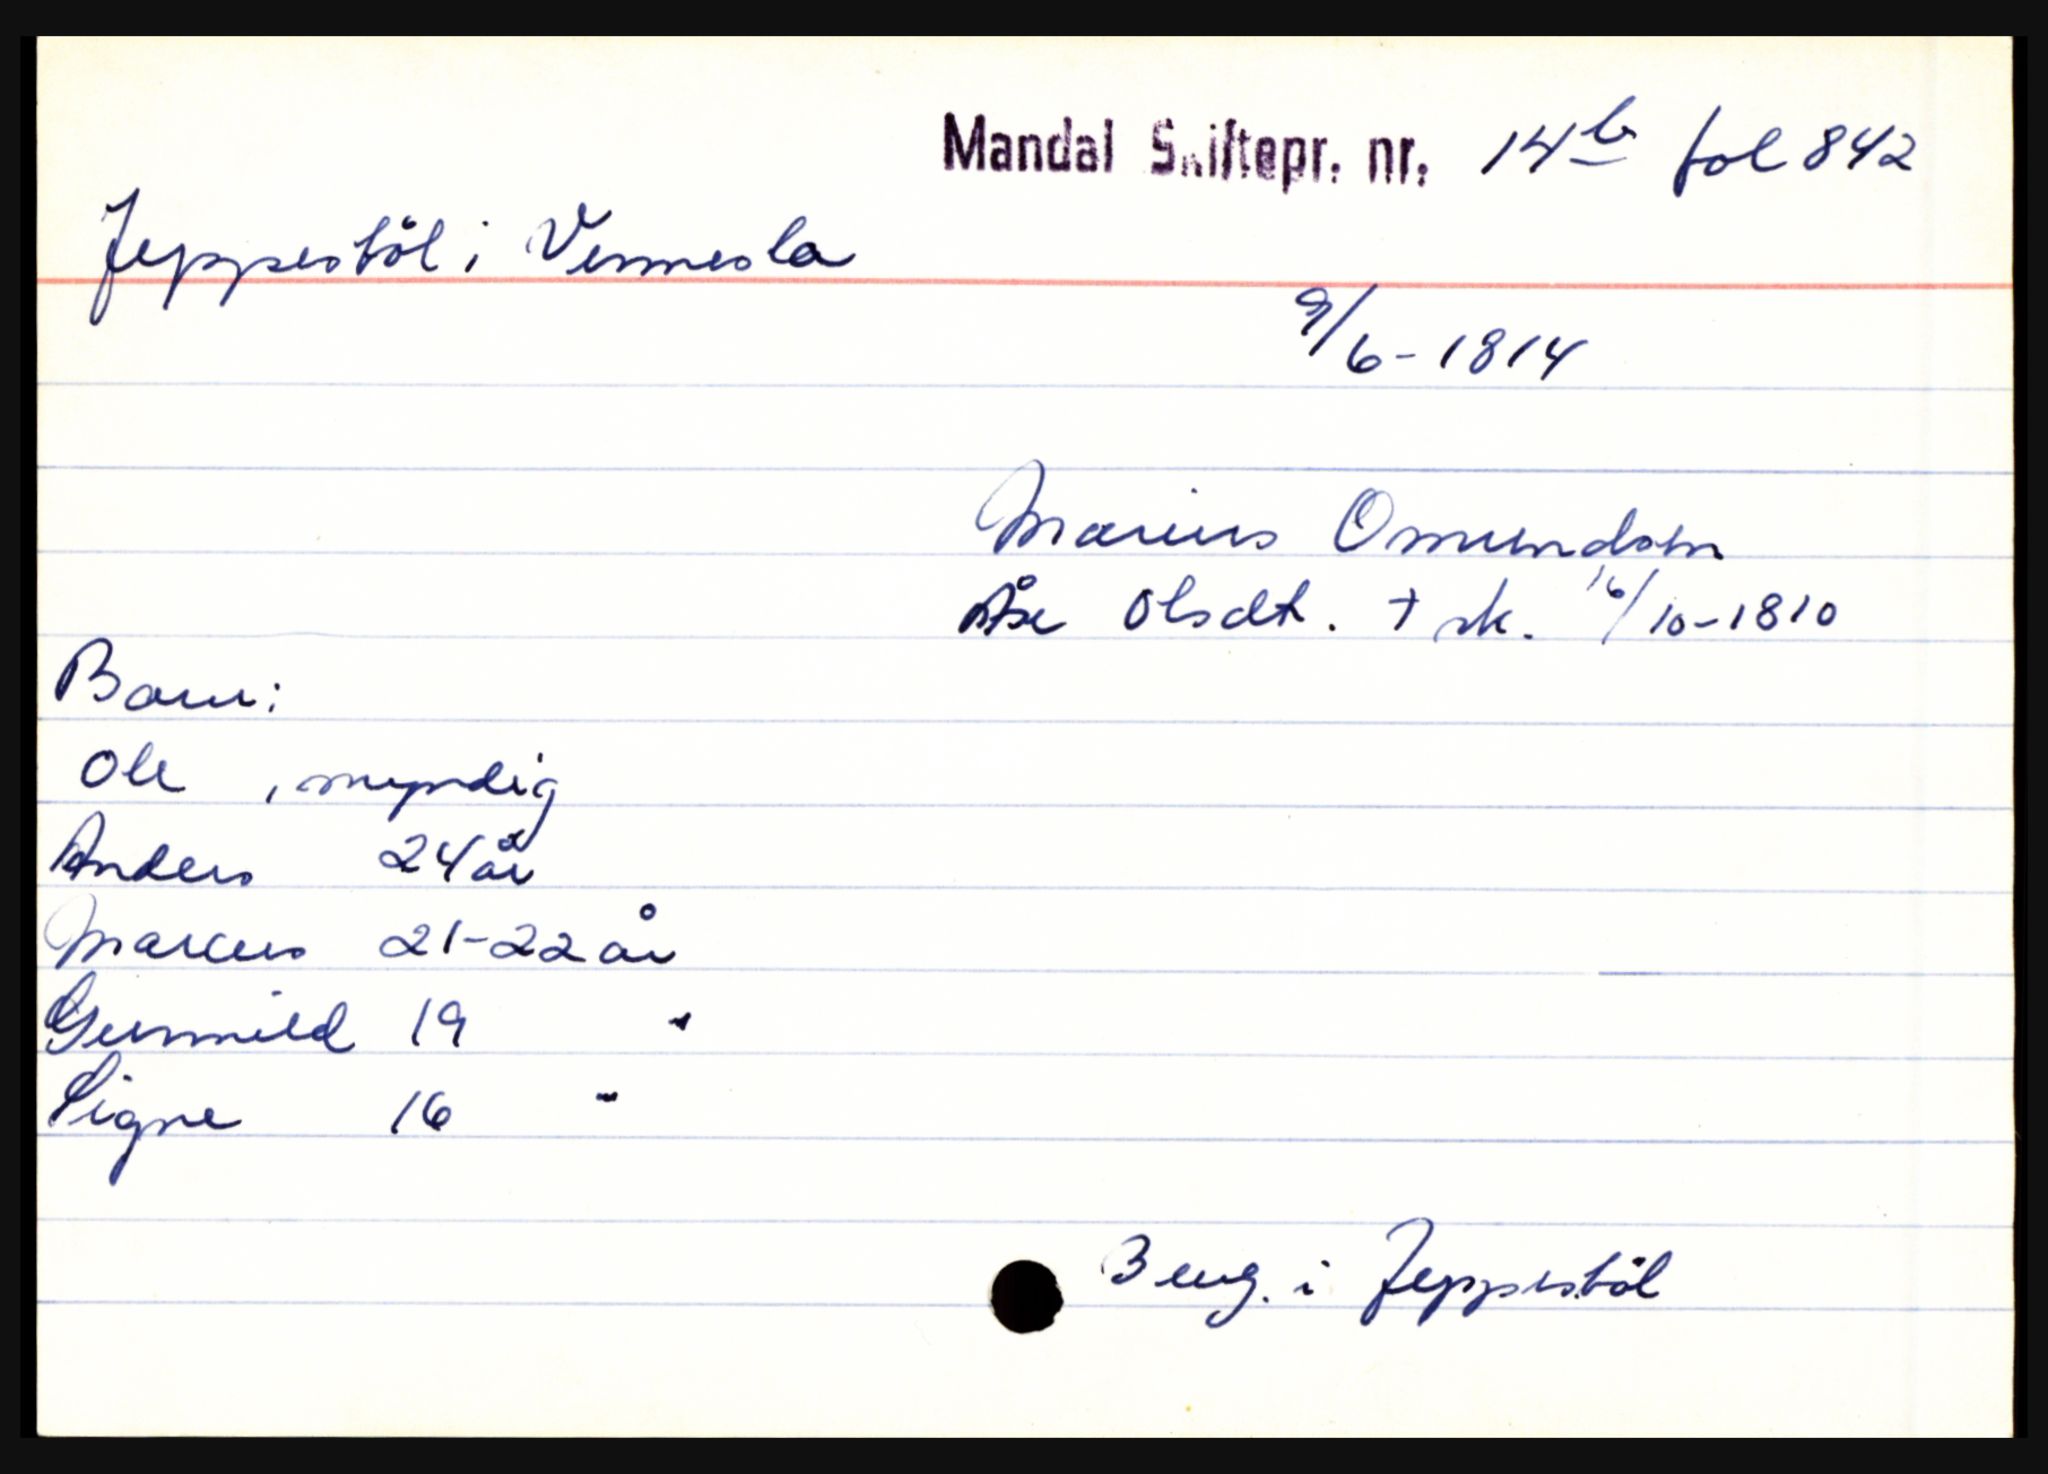 Mandal Skiftepr. nr. 14b fol 842
Jeppestöl i Vennesla
9/6-1814
Marius Omundsen
Åse Olsdt. + sk. 16/10-1810
Barn:
Ole , myndig
Anders 24 år
Marcus 21-22 år
Gunnild 19 "
Signe 16 "
Beug. i Jeppestöl